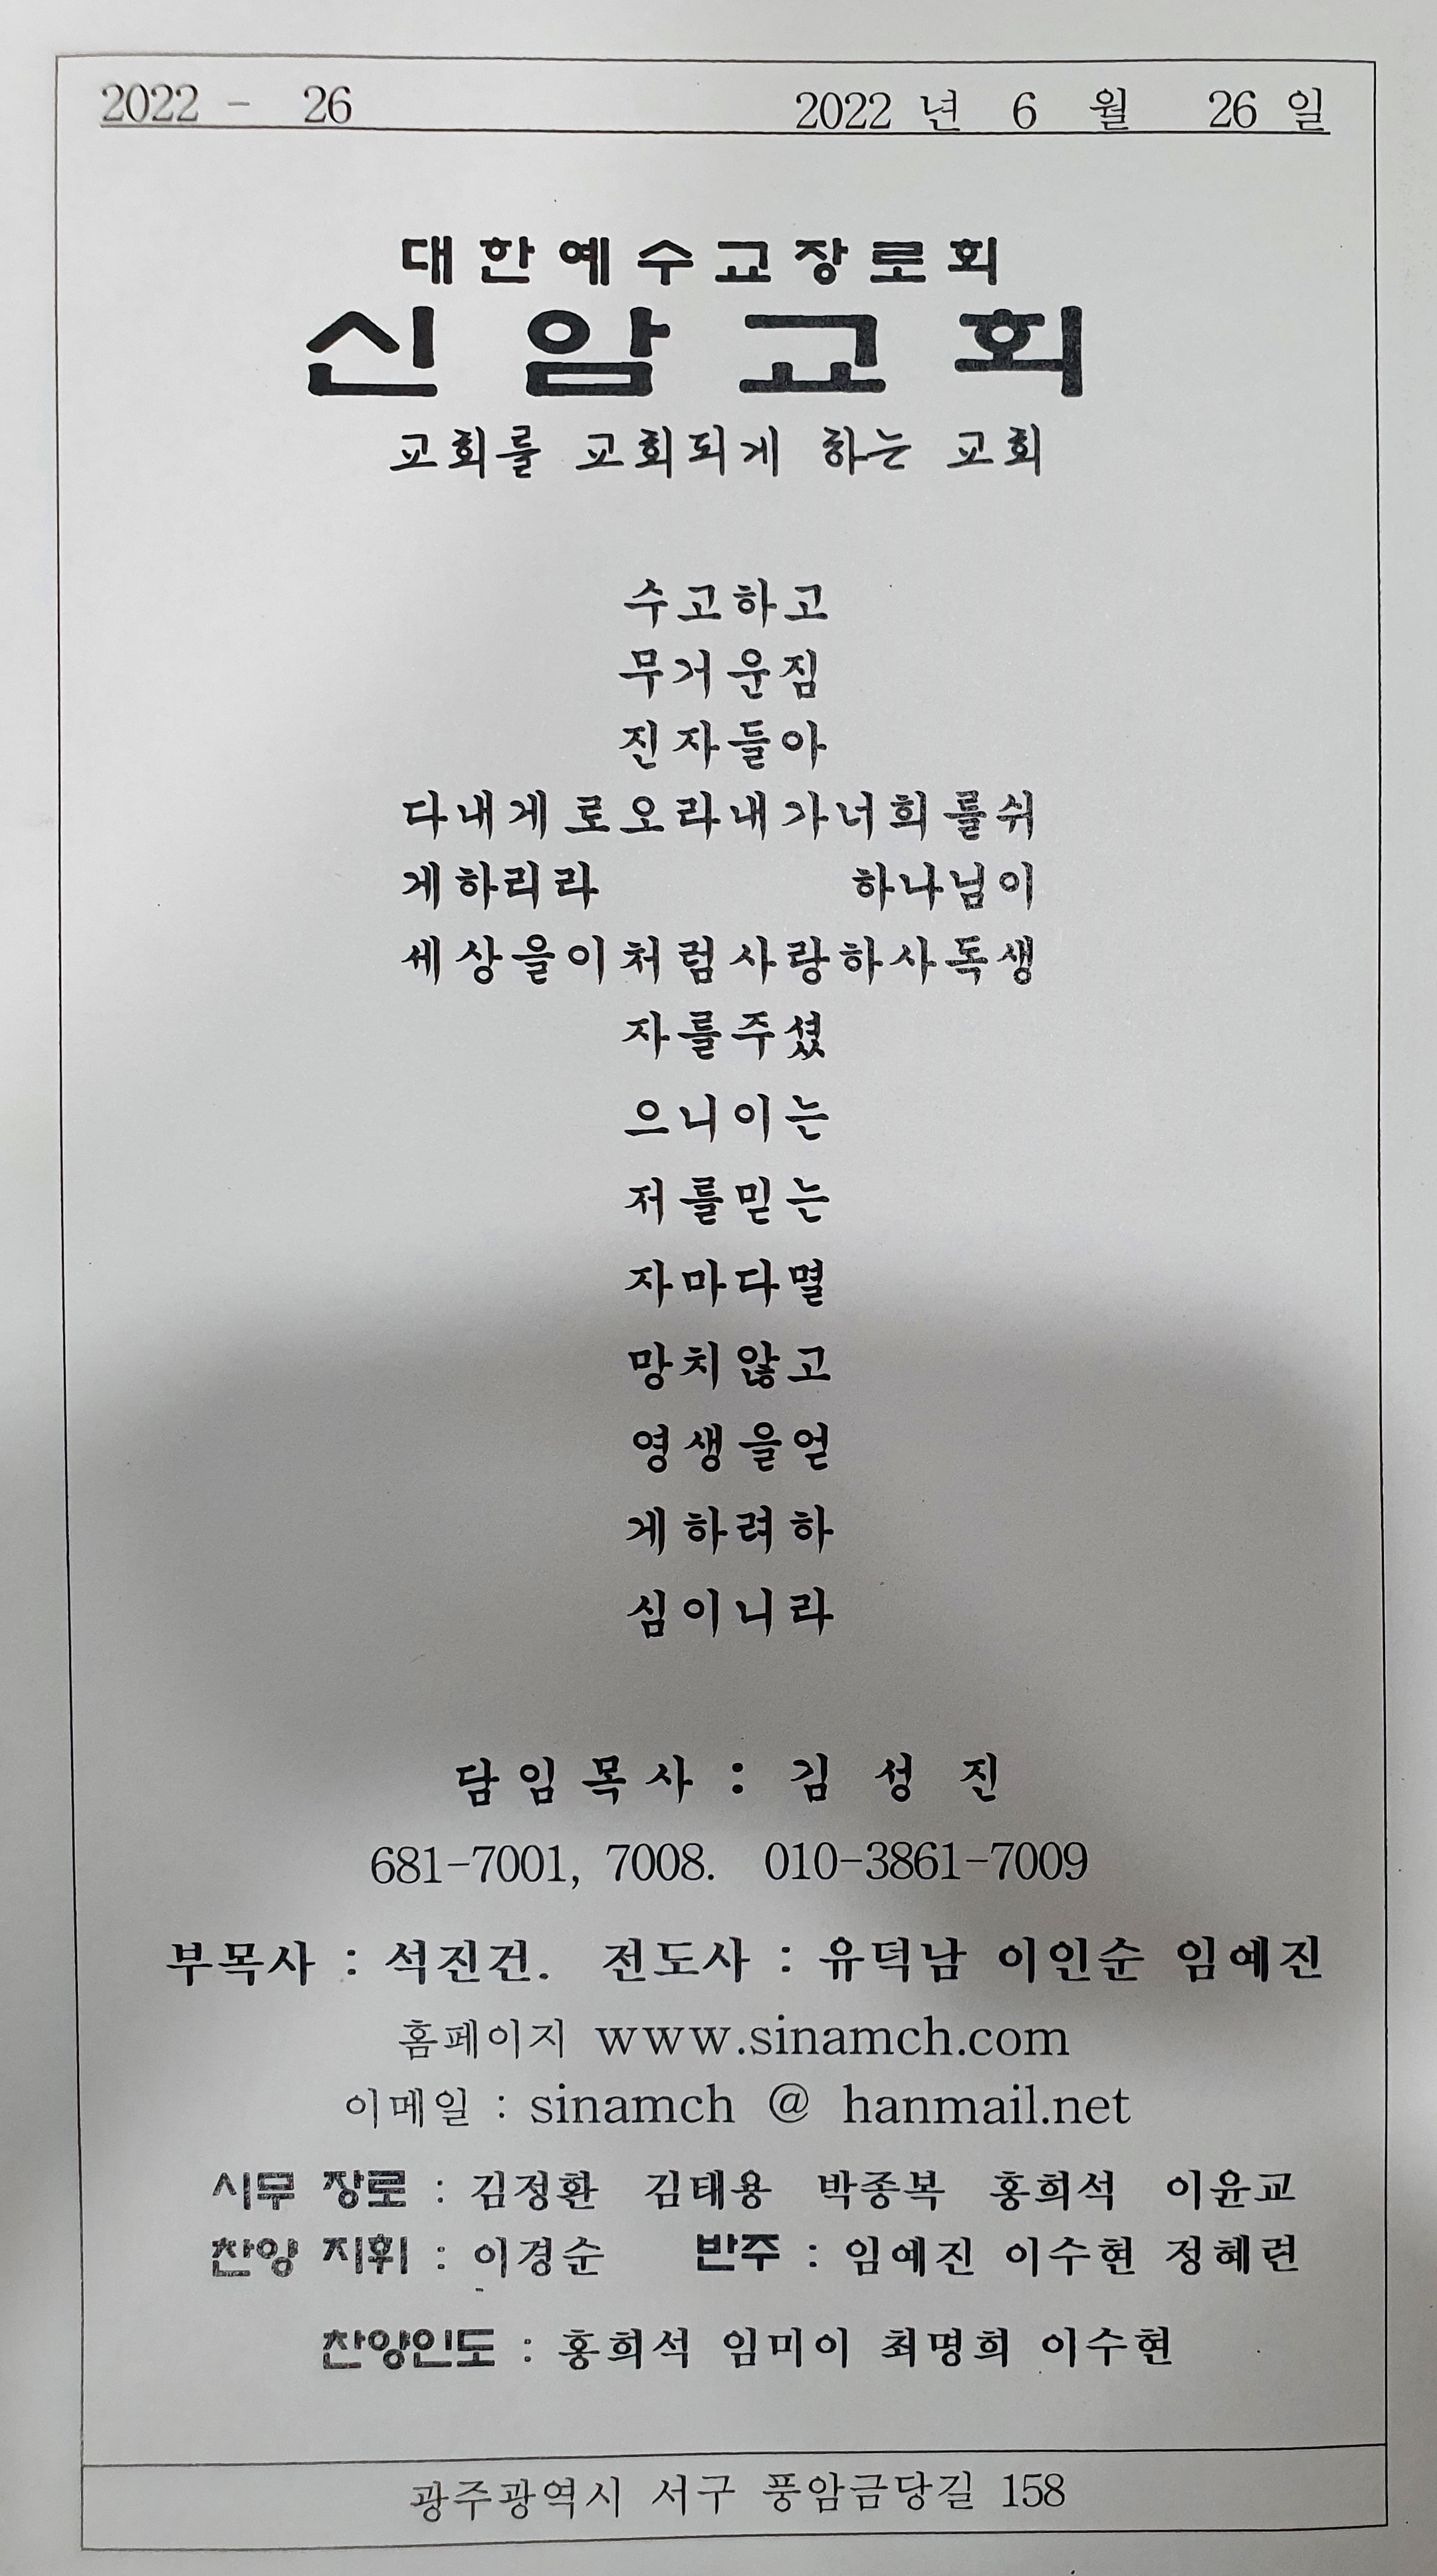 2022 - 26 2022 년 6 월 26 일
대한예수교장로회
신암교회
교회를 교회되게 하는 교회
수고하고
무거운짐
진자들아
다내게로오라내가너희를쉬
게하리라 하나님이
세상을이처럼사랑하사독생
자를주셨
으니이는
저를믿는
자마다멸
망치않고
영생을얻
게하려하
심이니라
담임목사 : 김 성 진
681-7001, 7008. 010-3861-7009
부목사 : 석진건. 전도사 : 유덕남 이인순 임예진
홈페이지 www.sinamch.com
이메일 : sinamch @ hanmail.net
시무 장로 : 김정환 김태용 박종복 홍희석 이윤교
찬양 지휘 : 이경순 반주 : 임예진 이수현 정혜련
찬양인도 : 홍희석 임미이 최명희 이수현
광주광역시 서구 풍암금당길 158